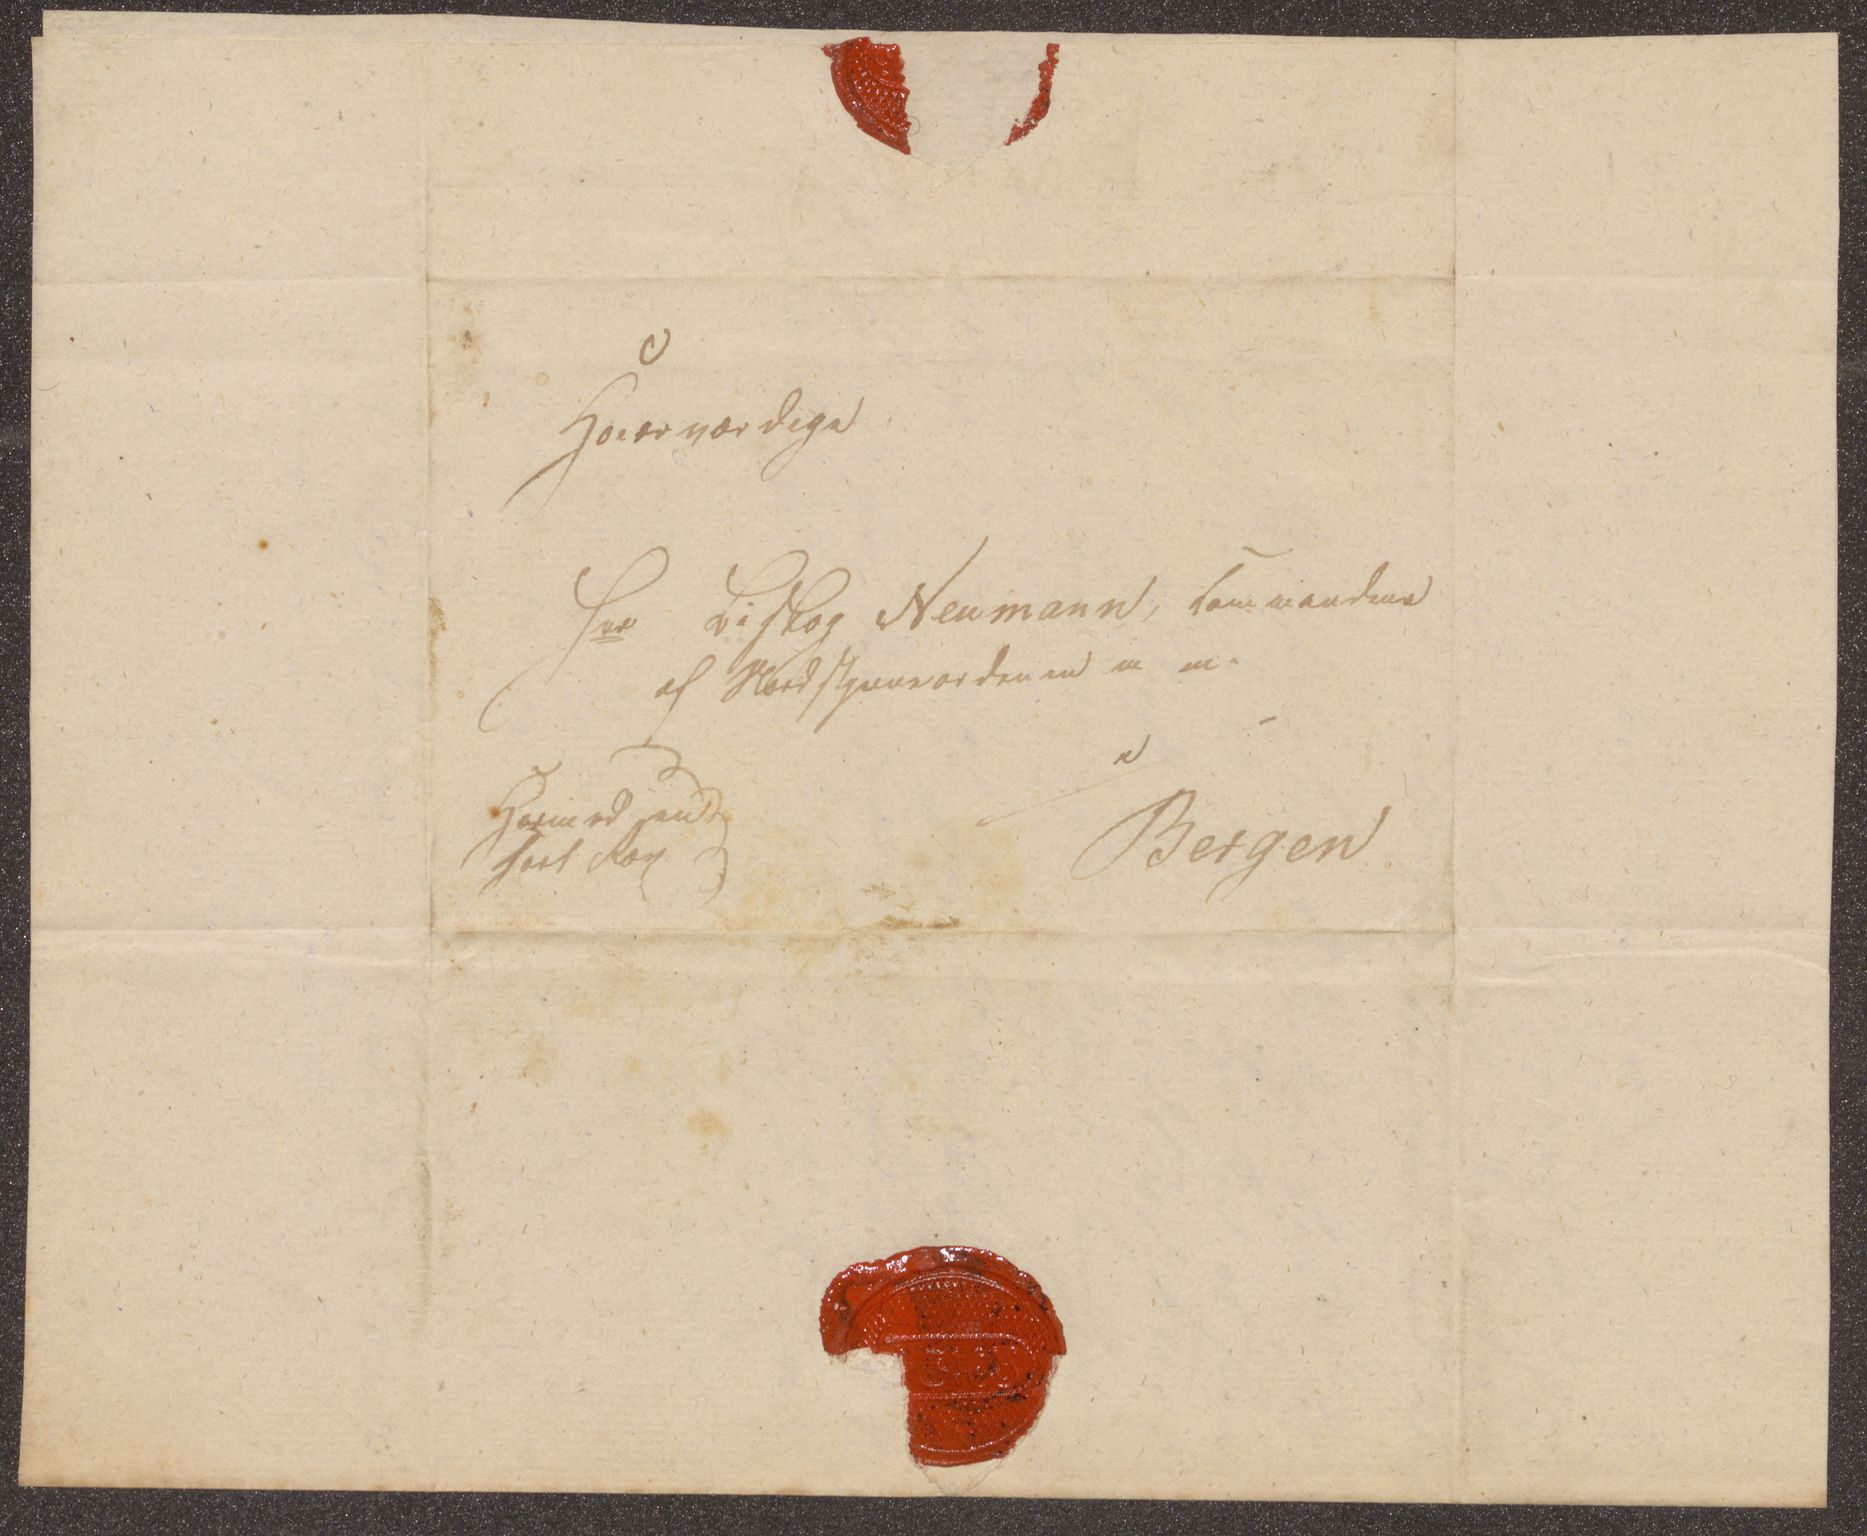 Høiærværdige
Hrr Biskop Neumann, Commandeur
af Nordstjerneordenen m m.
i
Bergen
Hermed en